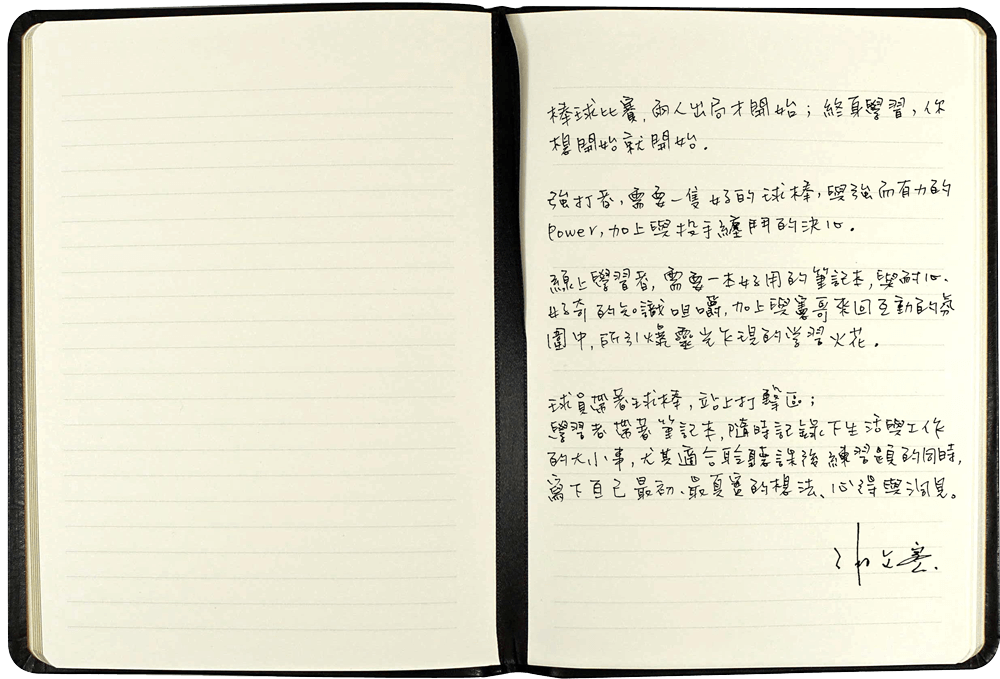 棒球比賽，兩人出局才開始；終身學習，你
想開始就開始。
強打者，需要一隻好的球棒，與強而有力的
Power，加上與投手纏鬥的決心。
線上學習者，需要一本好用的筆記本，與耐心、
好奇的知識咀嚼，加上與憲哥來回互動的氛
圍中，所引爆靈光乍現的学習火花。
球員帶著球棒，站上打擊區；
學習者帶著筆記本，隨時記錄下生活與工作
的大小事，尤其適合聆聽課後練習題的同時，
寫下自己最初、最真實的想法、心得與洞見。